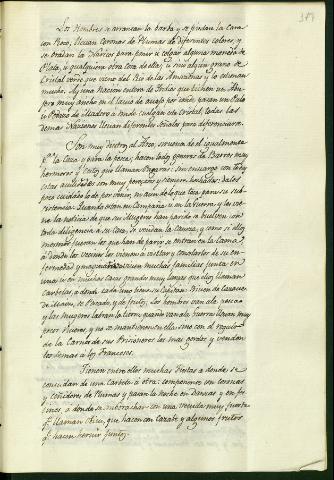 Los Hombres se arrancan la barba y se pintan la Cara
con Roxo, llevan Coronas de Plumas de diferentes colores, y
se oradan la Narices para poner o colgar alguna moneda de
Plata, u qualquiera otra Cosa de ellas, o sino algun grano de
Cristal verde que viene del Rio de las Amazonas y lo estiman
mucho. Ay una Nacion entera de Indios que tienen un Am
pro muy ancho en el lavio de avajo por donde pasan un Palo
o Pedazo de Madera a modo cuelgan este Cristal, todas las
demas Naciones llevan diferentes Señales para diferenciarse.
Son muy diestros al Arco, sirvense de el igualmente
pª la Caza y para la pesca; hacen todo generos de Barros muy
hermosos y Texen que llaman; sin embargo con todas
estas avilidades son muy perezosos y comen; dales
poco cuidado lo por venir, ni aun de lo que toca para su sub
sistencia; quando estan en Campaña u en la Guerra, y les vie
ne la noticia de que sus Mugeres han parido se buelven con
toda diligencia a su Casa, se vendan la Caveza, y como si ellos
mesmos fueran los que han de parir se entran en la Cama,
a donde los vecinos les vienen a visitar y consolarles de su en
fermedad ymaginaria viven muchas familias juntas en
unas en muchas casas grandes muy largas que ellos llaman
Carbetes, a donde cada uno tiene su Capitan. Viven de Cazave
de Maiz, se Pescado, y de frutas; Los hombres van a la pesca
y las mugeres labran la tierra quando van a la Guerra llevan muy
pocos Viveres, y no se mantienen en ella sino con el regulo
de la Carne de sus Prisioneros los mas gordos y venden
los demas a los Franceses.
Tienen entre ellos muchas Fiestas a donde se
convidan de una Carbete a otra: componense con Coronas
y ceñidores de Plumas y pasan la noche en Danzas y en fes
tines a donde se emborrachan con una vevida muy fuerte
qe llaman Oicu, que hacen con Cazabe y algunos frutos
qe hacen hervir juntos.